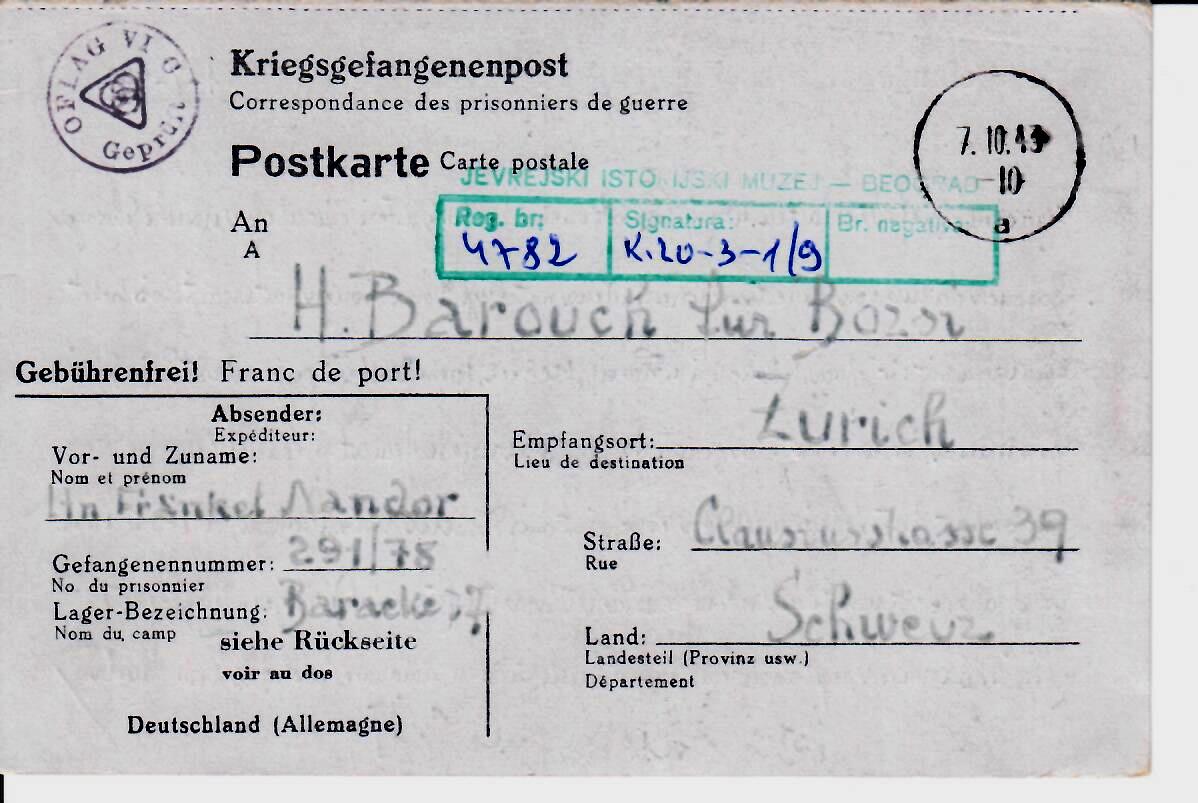 OFLAG VI C
Geprüft
Kriegsgefangenenpost
Correspondance des prisonniers de guerre
Postkarte Carte postale
7.10.43-10
a
JEVREJSKI ISTORIJSKI MUZEJ — BEOGRAD
Reg. br: Signatura: Br. negativa
4782 K.20-3-1/9
An
A
H. Barouch
Gebührenfrei! Franc de port!
Absender:
Expéditeur:
Vor- und Zuname:
Nom et prénom
Fränkel Nandor
Gefangenennummer: 291/78
No. du prisonnier
Lager-Bezeichnung: Baracke 37
Nom du camp
siehe Rückseite
voir au dos
Deutschland (Allemagne)
Empfangsort: Zürich
Lieu de destination
Straße: Clausiusstrasse 39
Rue
Land: Schweiz
Landesteil (Provinz usw.)
Département